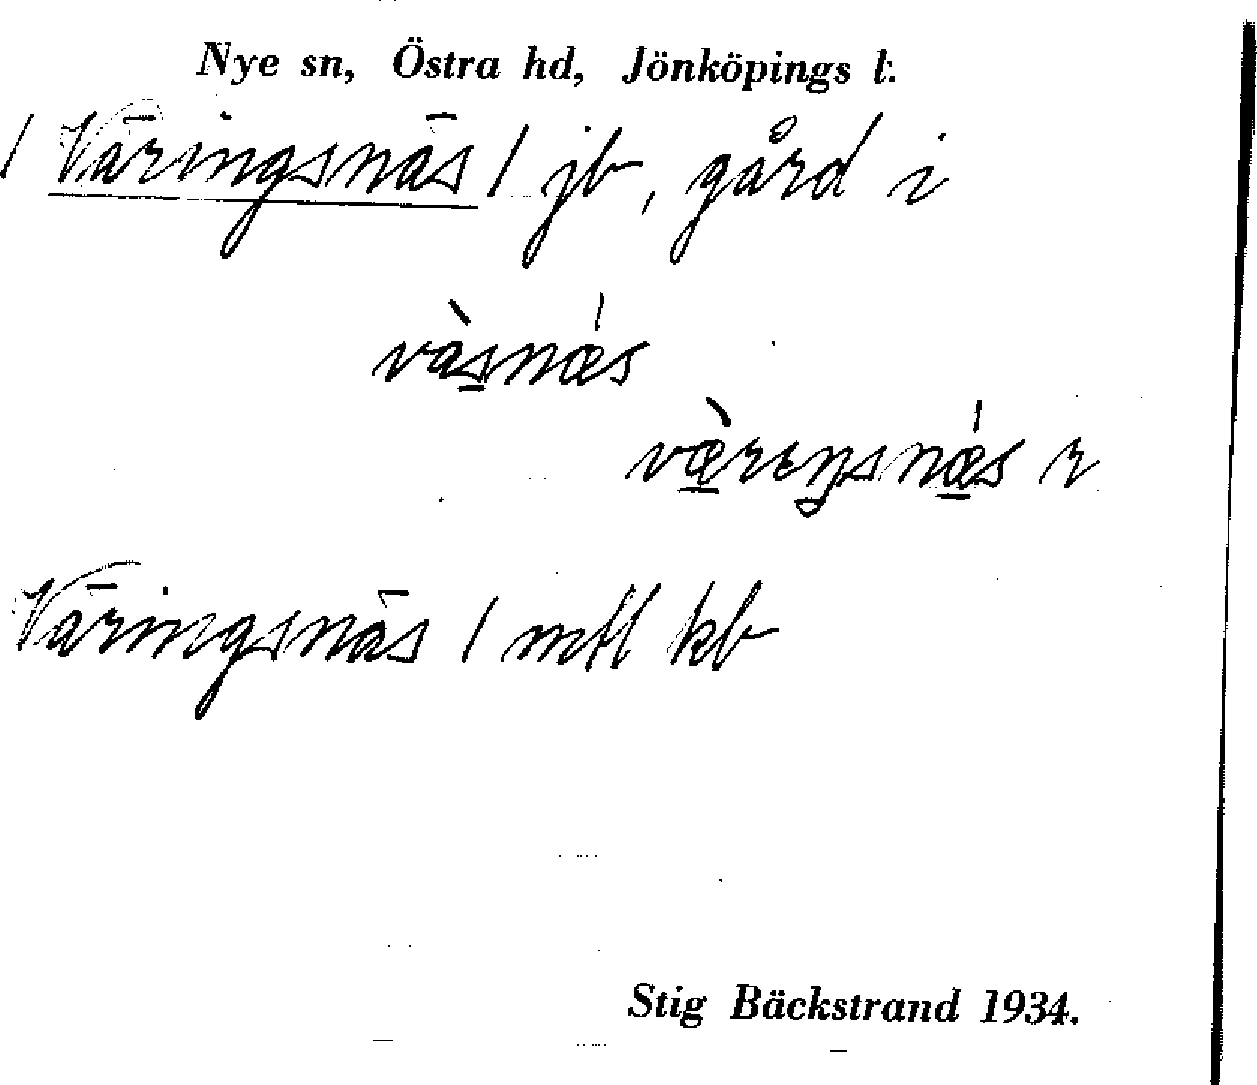 Nye sn, Östra hd, Jönköpings l.
/ Väringsnäs / jb, gård i
vàsnæ̀s
væ̀reŋsnæ̀s r
Väringsnäs / mtl kb
Stig Bäckstrand 1934.